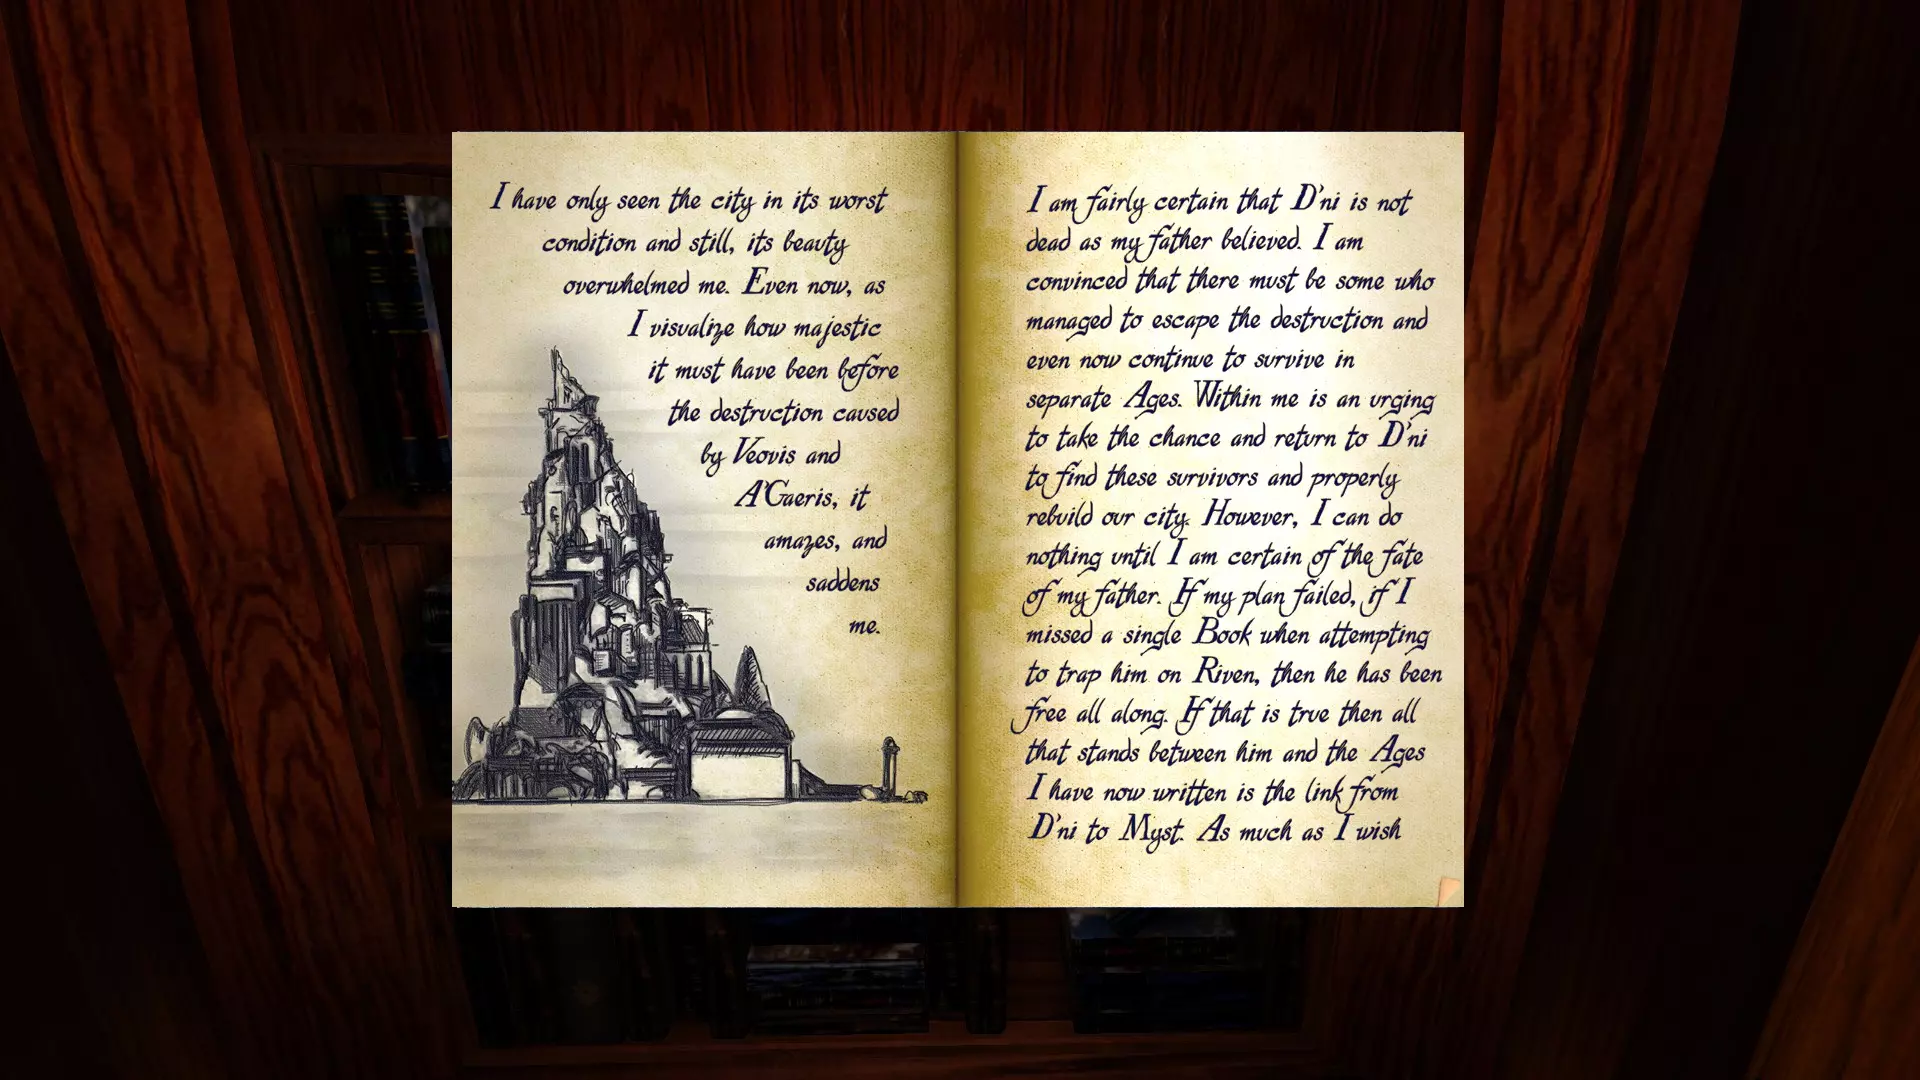 I have only seen the city in its worst
condition and still, its beauty
overwhelmed me. Even now, as
I visualize how majestic
it must have been before
the destruction caused
by Veovis and
A'Gaeris, it
amazes, and
saddens
me.
I am fairly certain that D'ni is not
dead as my father believed. I am
convinced that there must be some who
managed to escape the destruction and
even now continue to survive in
separate Ages. Within me is an urging
to take the chance and return to D'ni
to find these survivors and properly
rebuild our city. However, I can do
nothing until I am certain of the fate
of my father. If my plan failed, if I
missed a single Book when attempting
to trap him on Riven, then he has been
free all along. If that is true then all
that stands between him and the Ages
I have now written is the link from
D'ni to Myst. As much as I wish